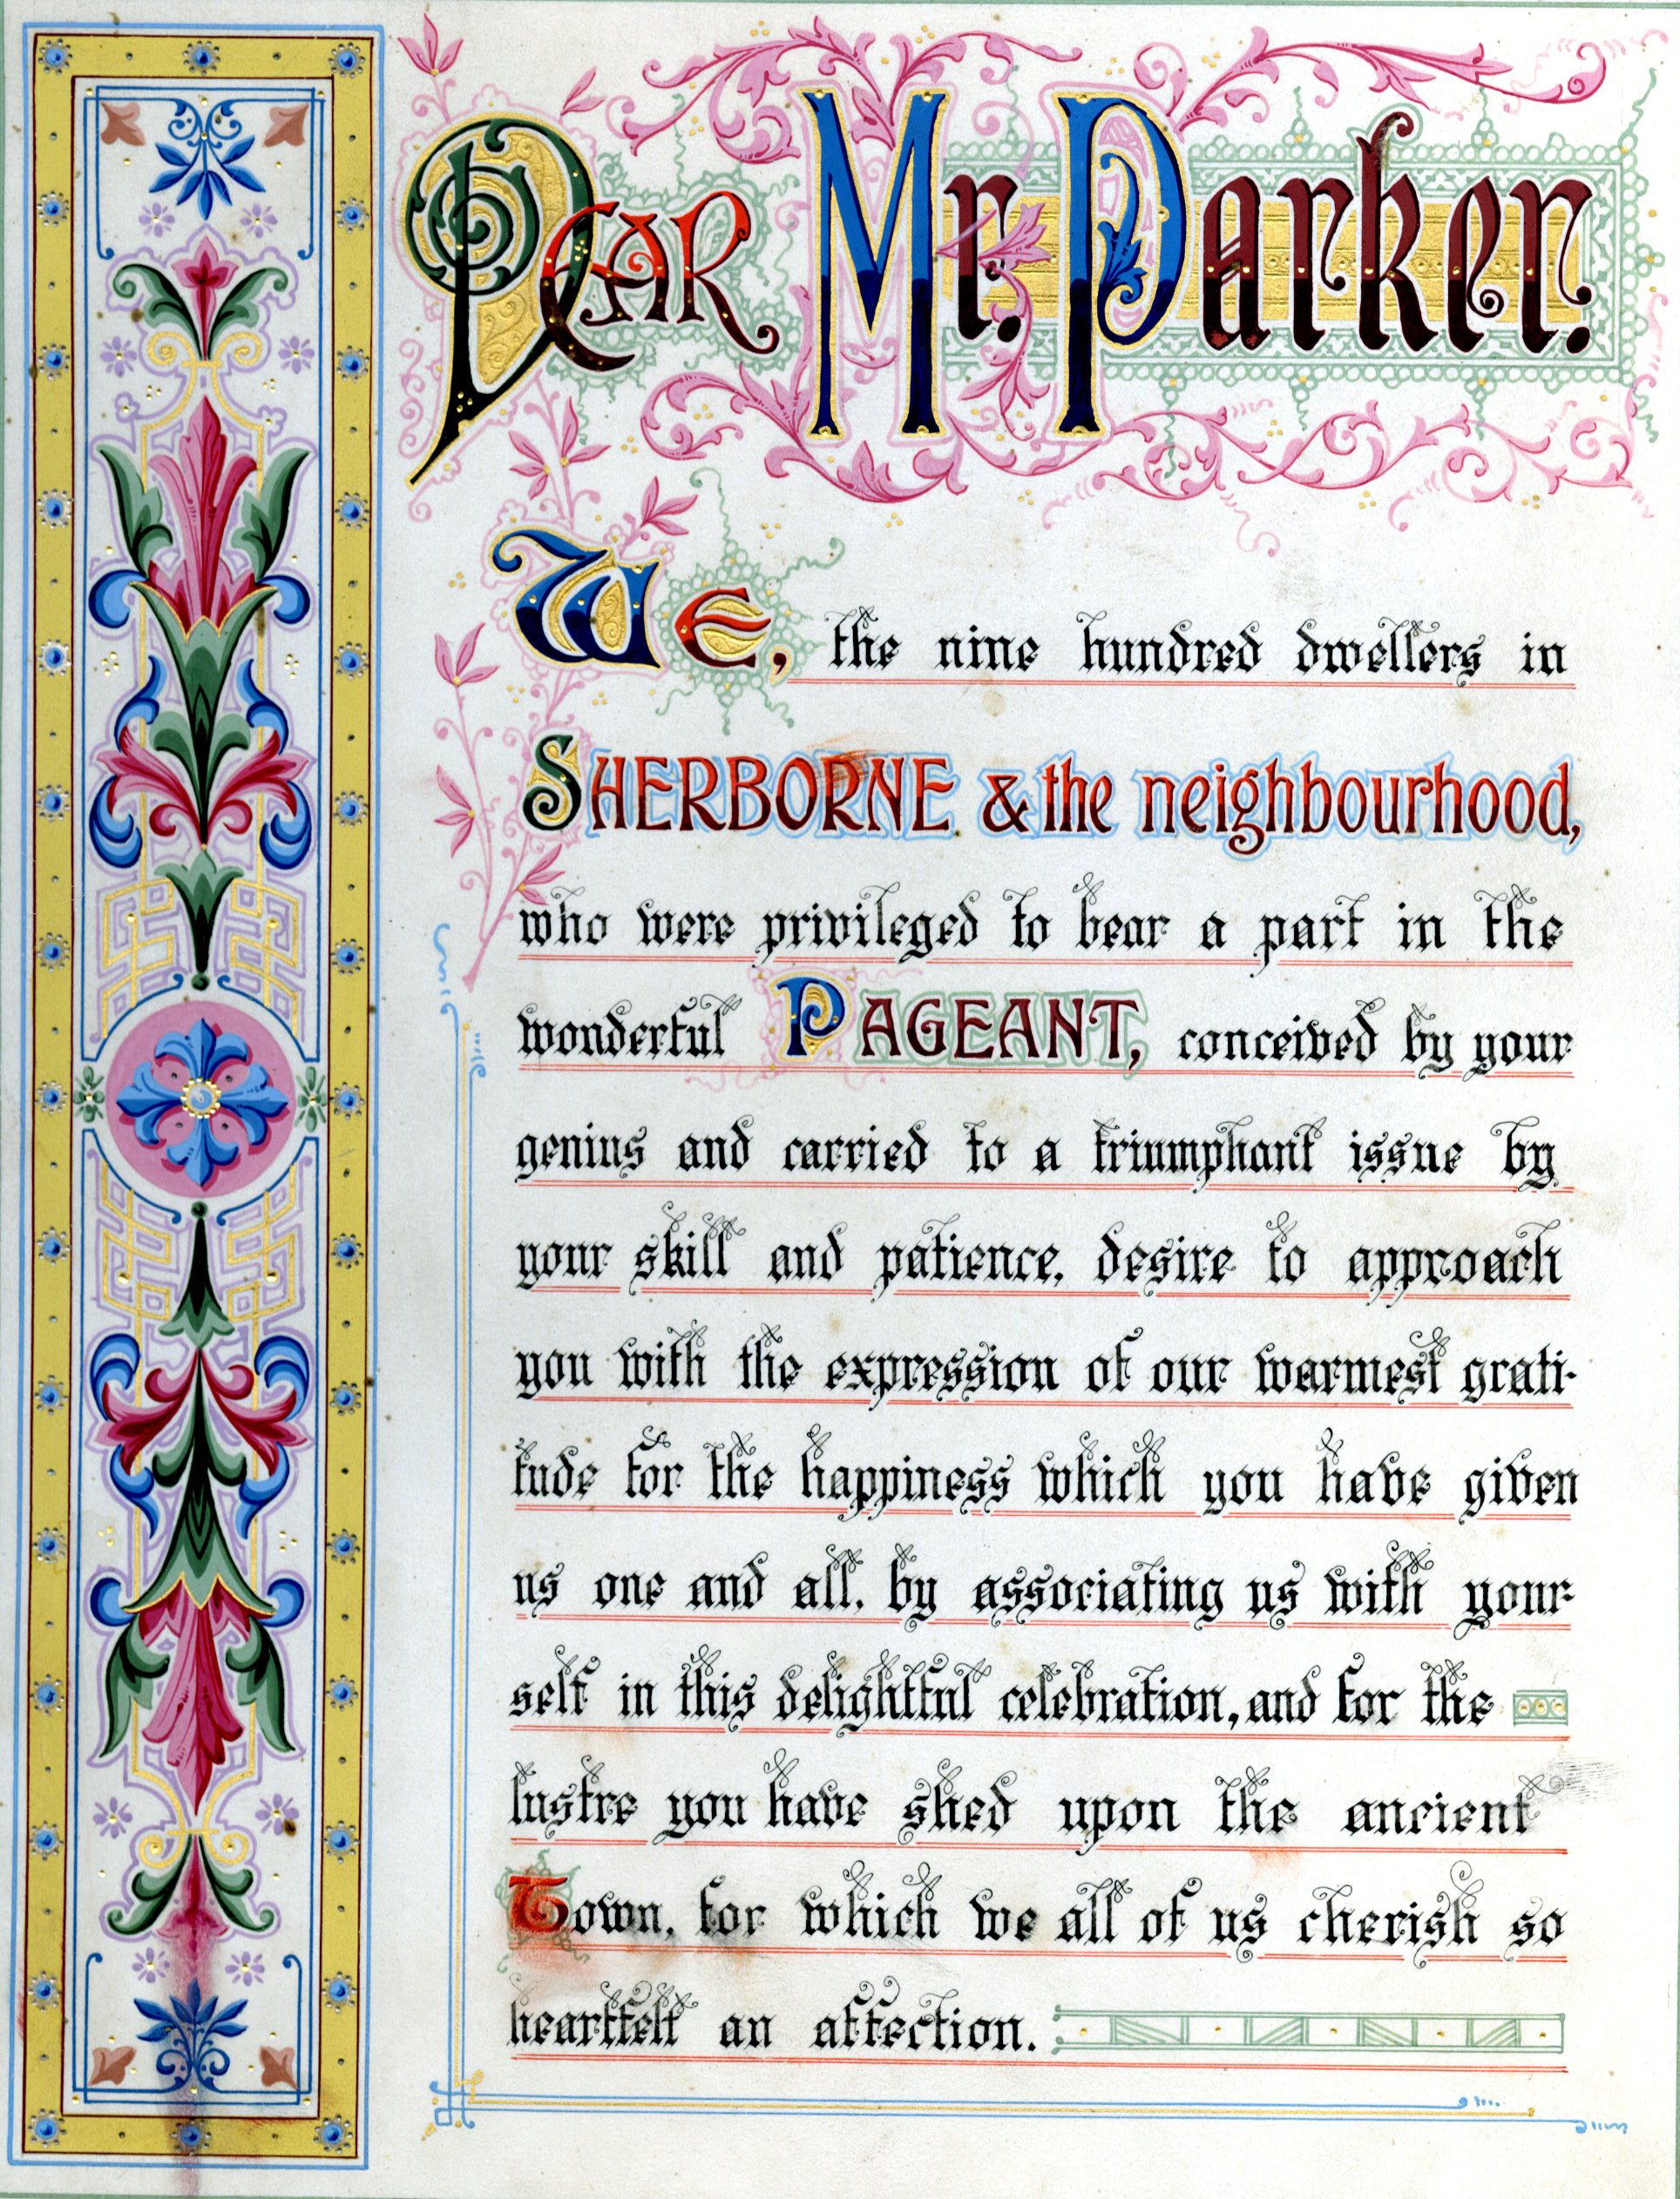 Dear Mr. Parker.
We, the nine hundred dwellers in
SHERBORNE & the neighbourhood,
who were privileged to bear a part in the
wonderful PAGEANT, conceived by your
genius and carried to a triumphant issue by
your skill and patience, desire to approach
you with the expression of our warmest grati-
tude for the happiness which you have given
us one and all, by associating us with your-
self in this delightful celebration, and for the
lustre you have shed upon the ancient
Town, for which we all of us cherish so
heartfelt an affection.